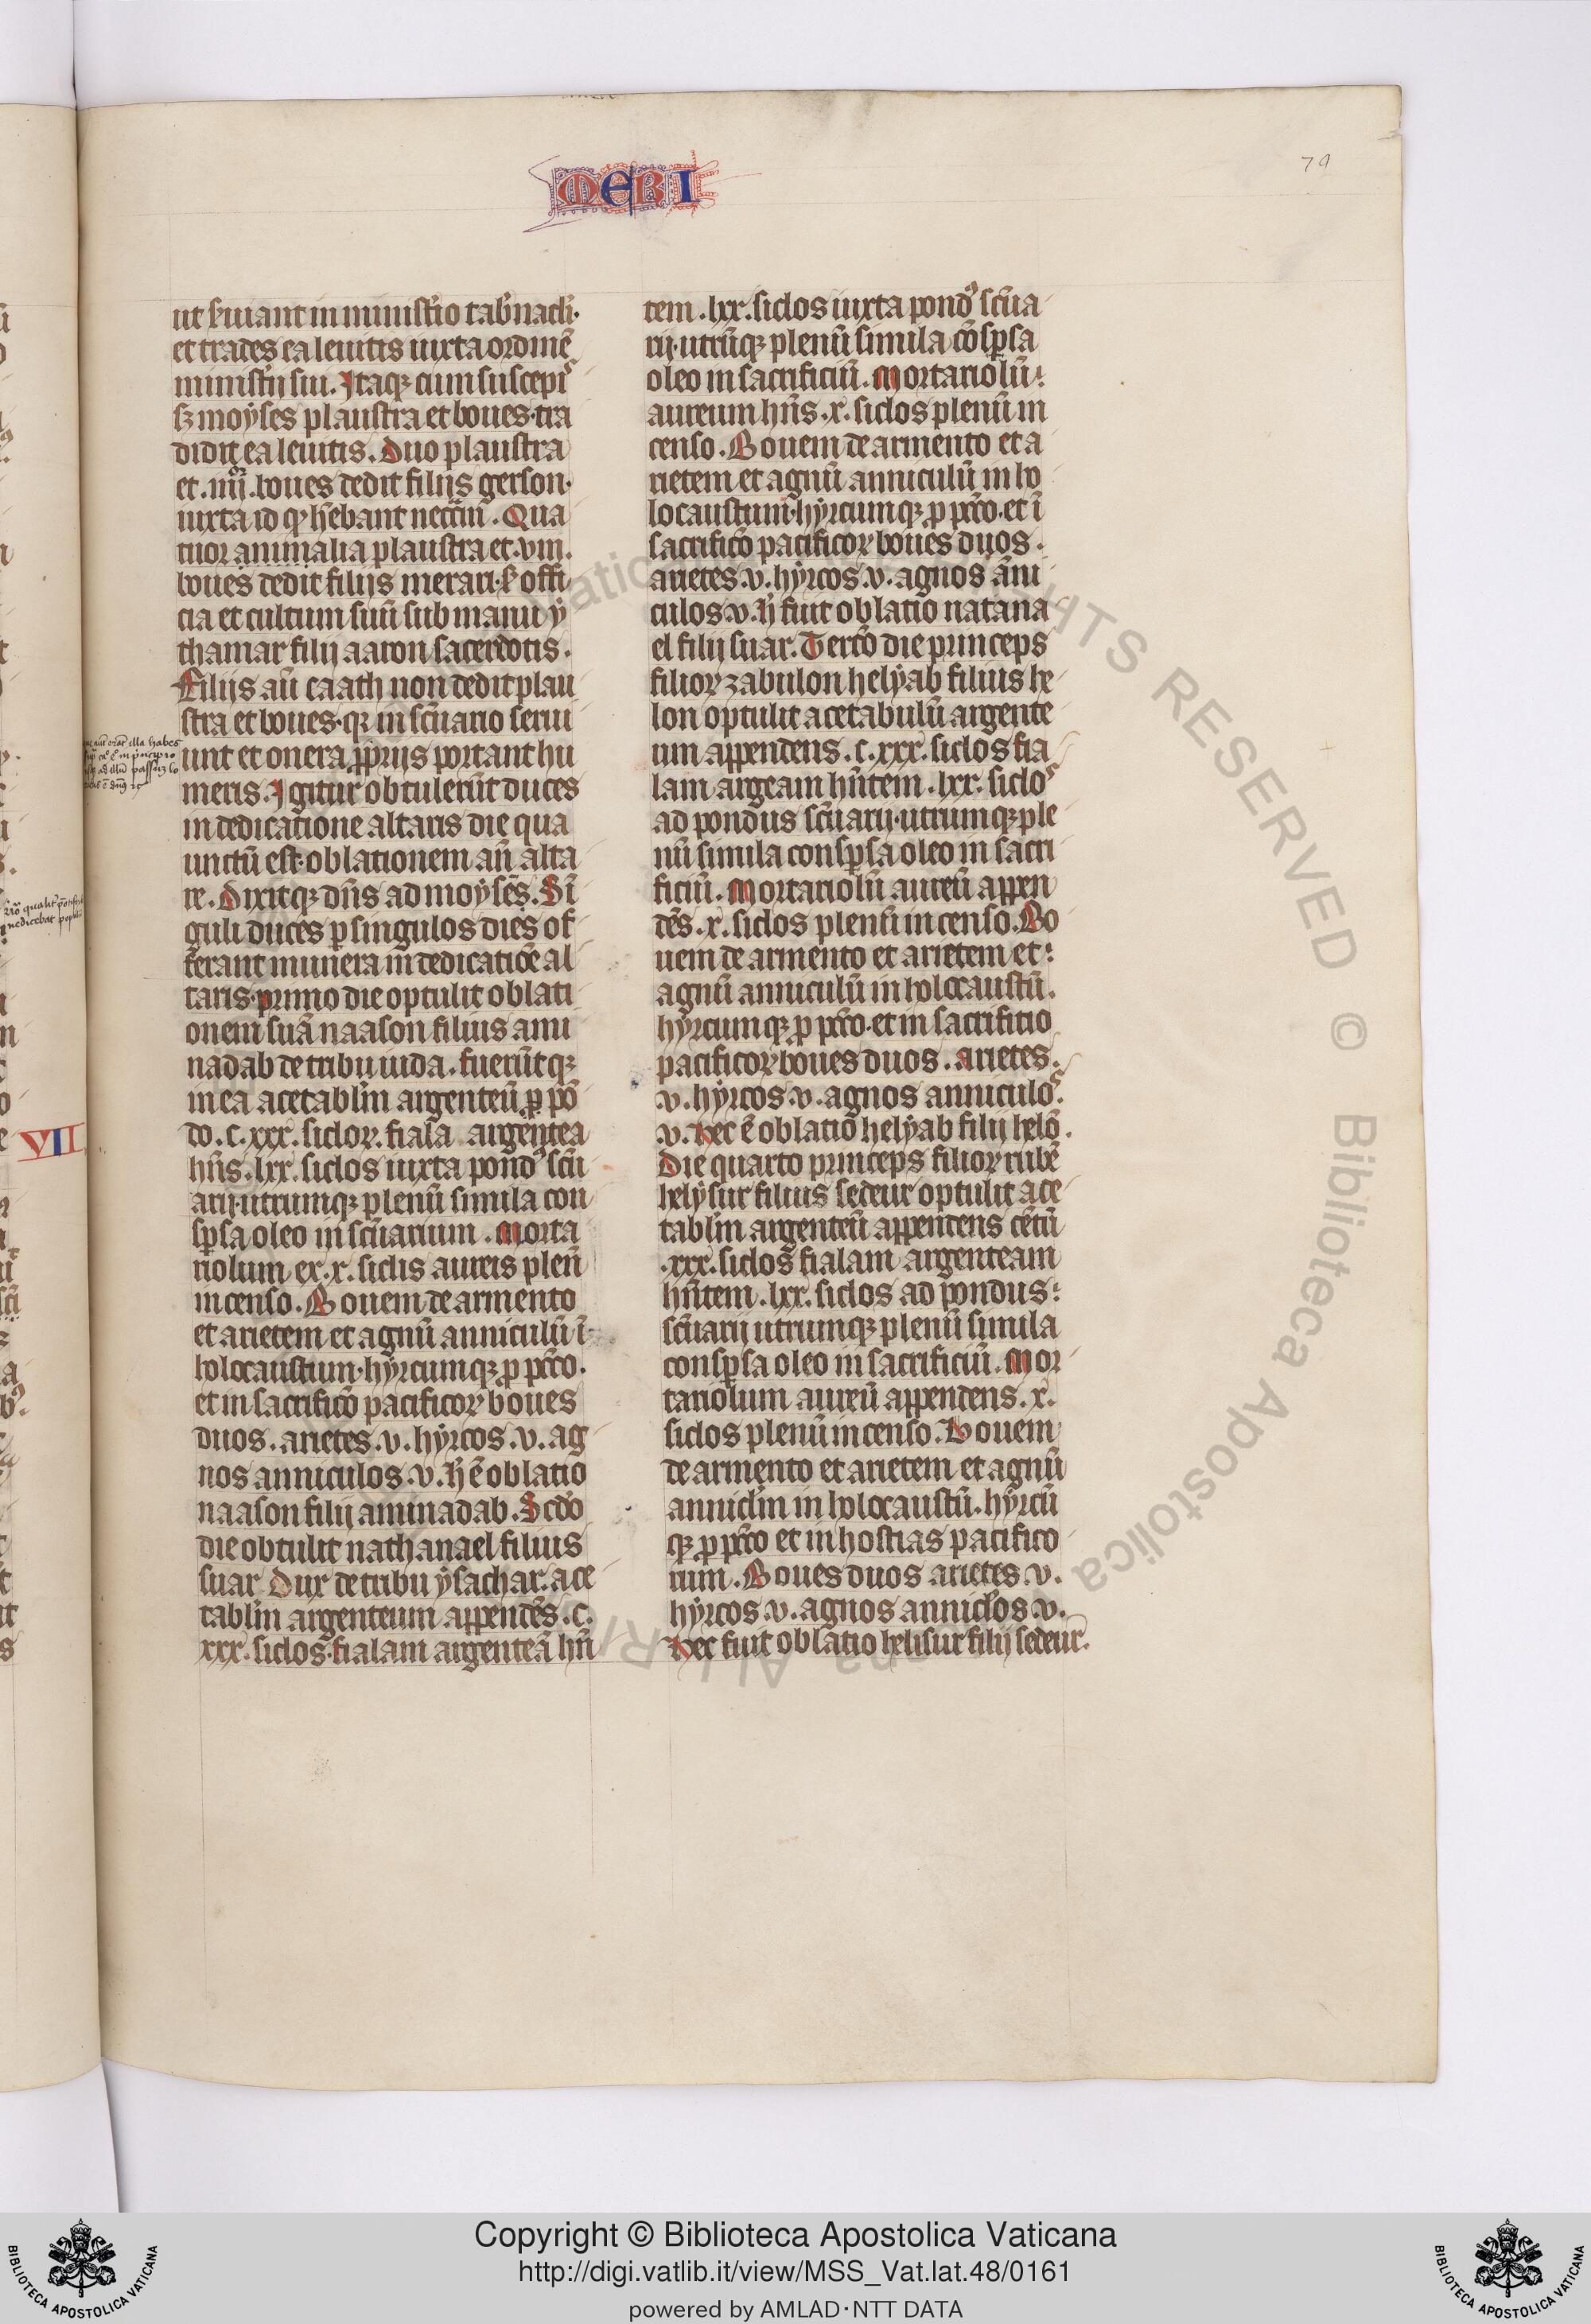 MERI
79
ut ẜuiant in minist̉io tab̉nacli·
et trades ea leuitis iuxta ordinē
ministr̉ii sui. Itaqꝫ cum suscepi
sꝫ moyses plaustra et boues·tra
didit ea leuitis. Duo plaustra
et .iiii. boues dedit filijs gerson·
iuxta id qđ hēbant nec̄c̄iū. Qua
tuor animalia plaustra et .viii.
boues dedit filijs merari·ẜ offi
cia et cultum suū sub manu ẏ
thamar filij aaron sacerdotis.
Filijs aū caath non dedit plau
stra et boues·qꝛ in sc̄uario serui
unt et onera ꝓprijs portant hu
meris. Igitur obtulerūt duces
in dedicatione altaris die qua
unctū est·oblationem aū alta
re. Dixitqꝫ dn̄s ad moysēs. Si
guli duces ꝑ singulos dies of
ferant munera in dedicatiōe al
taris·primo die optulit oblati
onem suā naason filius ami
nadab de tribu iuda. fuerūtqꝫ
in ea acetablm̄ argenteū ꝓ pō
do .c.xxx. siclorꝫ. fiala argentea
hn̄s .lxx. siclos iuxta pond̾ sc̄u
arij·utrumqꝫ plenū simila con
sꝑsa oleo in sc̄uarium. Morta
riolum ex .x. siclis aureis plenū
incenso. Bouem de armento
et arietem et agnū anniculū ī
holocaustum·hyrcumqꝫ ꝓ pctō.
et in sacrificō pacificorꝫ boues
duos. arietes .v. hyrcos .v. ag
nos anniculos .v. h̄ ē oblatio
naason filij aminadab. Scdō
die obtulit nathanael filius
suar Dux de tribu ẏsachar. ace
tablm̄ argenteum appendēs .c.
xxx. siclos·fialam argenteā hn̄
tem .lxx. siclos iuxta pond̾ sc̄ua
rij·utrūqꝫ plenū simila cōsꝑsa
oleo in sacrificiū. Mortariolū
aureum hn̄s .x. siclos plenū in
censo. Bouem de armento et a
rietem et agnū anniculū in ho
locaustum·hyrcumqꝫ ꝓ pctō·et ī
sacrificō pacificorꝫ boues duos.
arietes .v. hyrcos .v. agnos āni
culos .v. h̄ fuit oblatio natana
el filij suar. Tertō die princeps
filiorꝫ zabulon helyab filius he
lon optulit acetabulū argente
um appendens .c.xxx. siclos fia
lam argeam hn̄tem .lxx. siclos
ad pondus sc̄uarij·utrumqꝫ ple
nū simila consꝑsa oleo in sacri
ficiū. Mortariolū aureū appen
dēs .x. siclos plenū incenso. Bo
uem de armento et arietem et
agnū anniculū in holocaustū.
hyrcumqꝫ ꝓ pctō·et in sacrifitio
pacificorꝫ boues duos. Arietes.
.v. hyrcos .v. agnos anniculos
.v. Hec ē oblatiō helyab filij helō.
Die quarto princeps filiorꝫ rubē
helysur filius sedeur optulit ace
tablm̄ argenteū appendens cētū
.xxx. siclos fialam argenteam
hn̄tem .lxx. siclos ad pondus
sc̄uarij utrumqꝫ plenū simila
consꝑsa oleo in sacrificiū. Mor
tariolum aureū appendens .x.
siclos plenū incenso. Bouem
de armento et arietem et agnū
anniclm̄ in holocaustū. hyrcū
qꝫ ꝓ pctō et in hostias pacifico
rum. Boues duos arietes .v.
hyrcos .v. agnos anniclos .v.
Hec fuit oblatio helisur filij sedeur.
VII
Copyright © Biblioteca Apostolica Vaticana
http://digi.vatlib.it/view/MSS_Vat.lat.48/0161
powered by AMLAD·NTT DATA
BIBLIOTECA APOSTOLICA VATICANA
BIBLIOTECA APOSTOLICA VATICANA